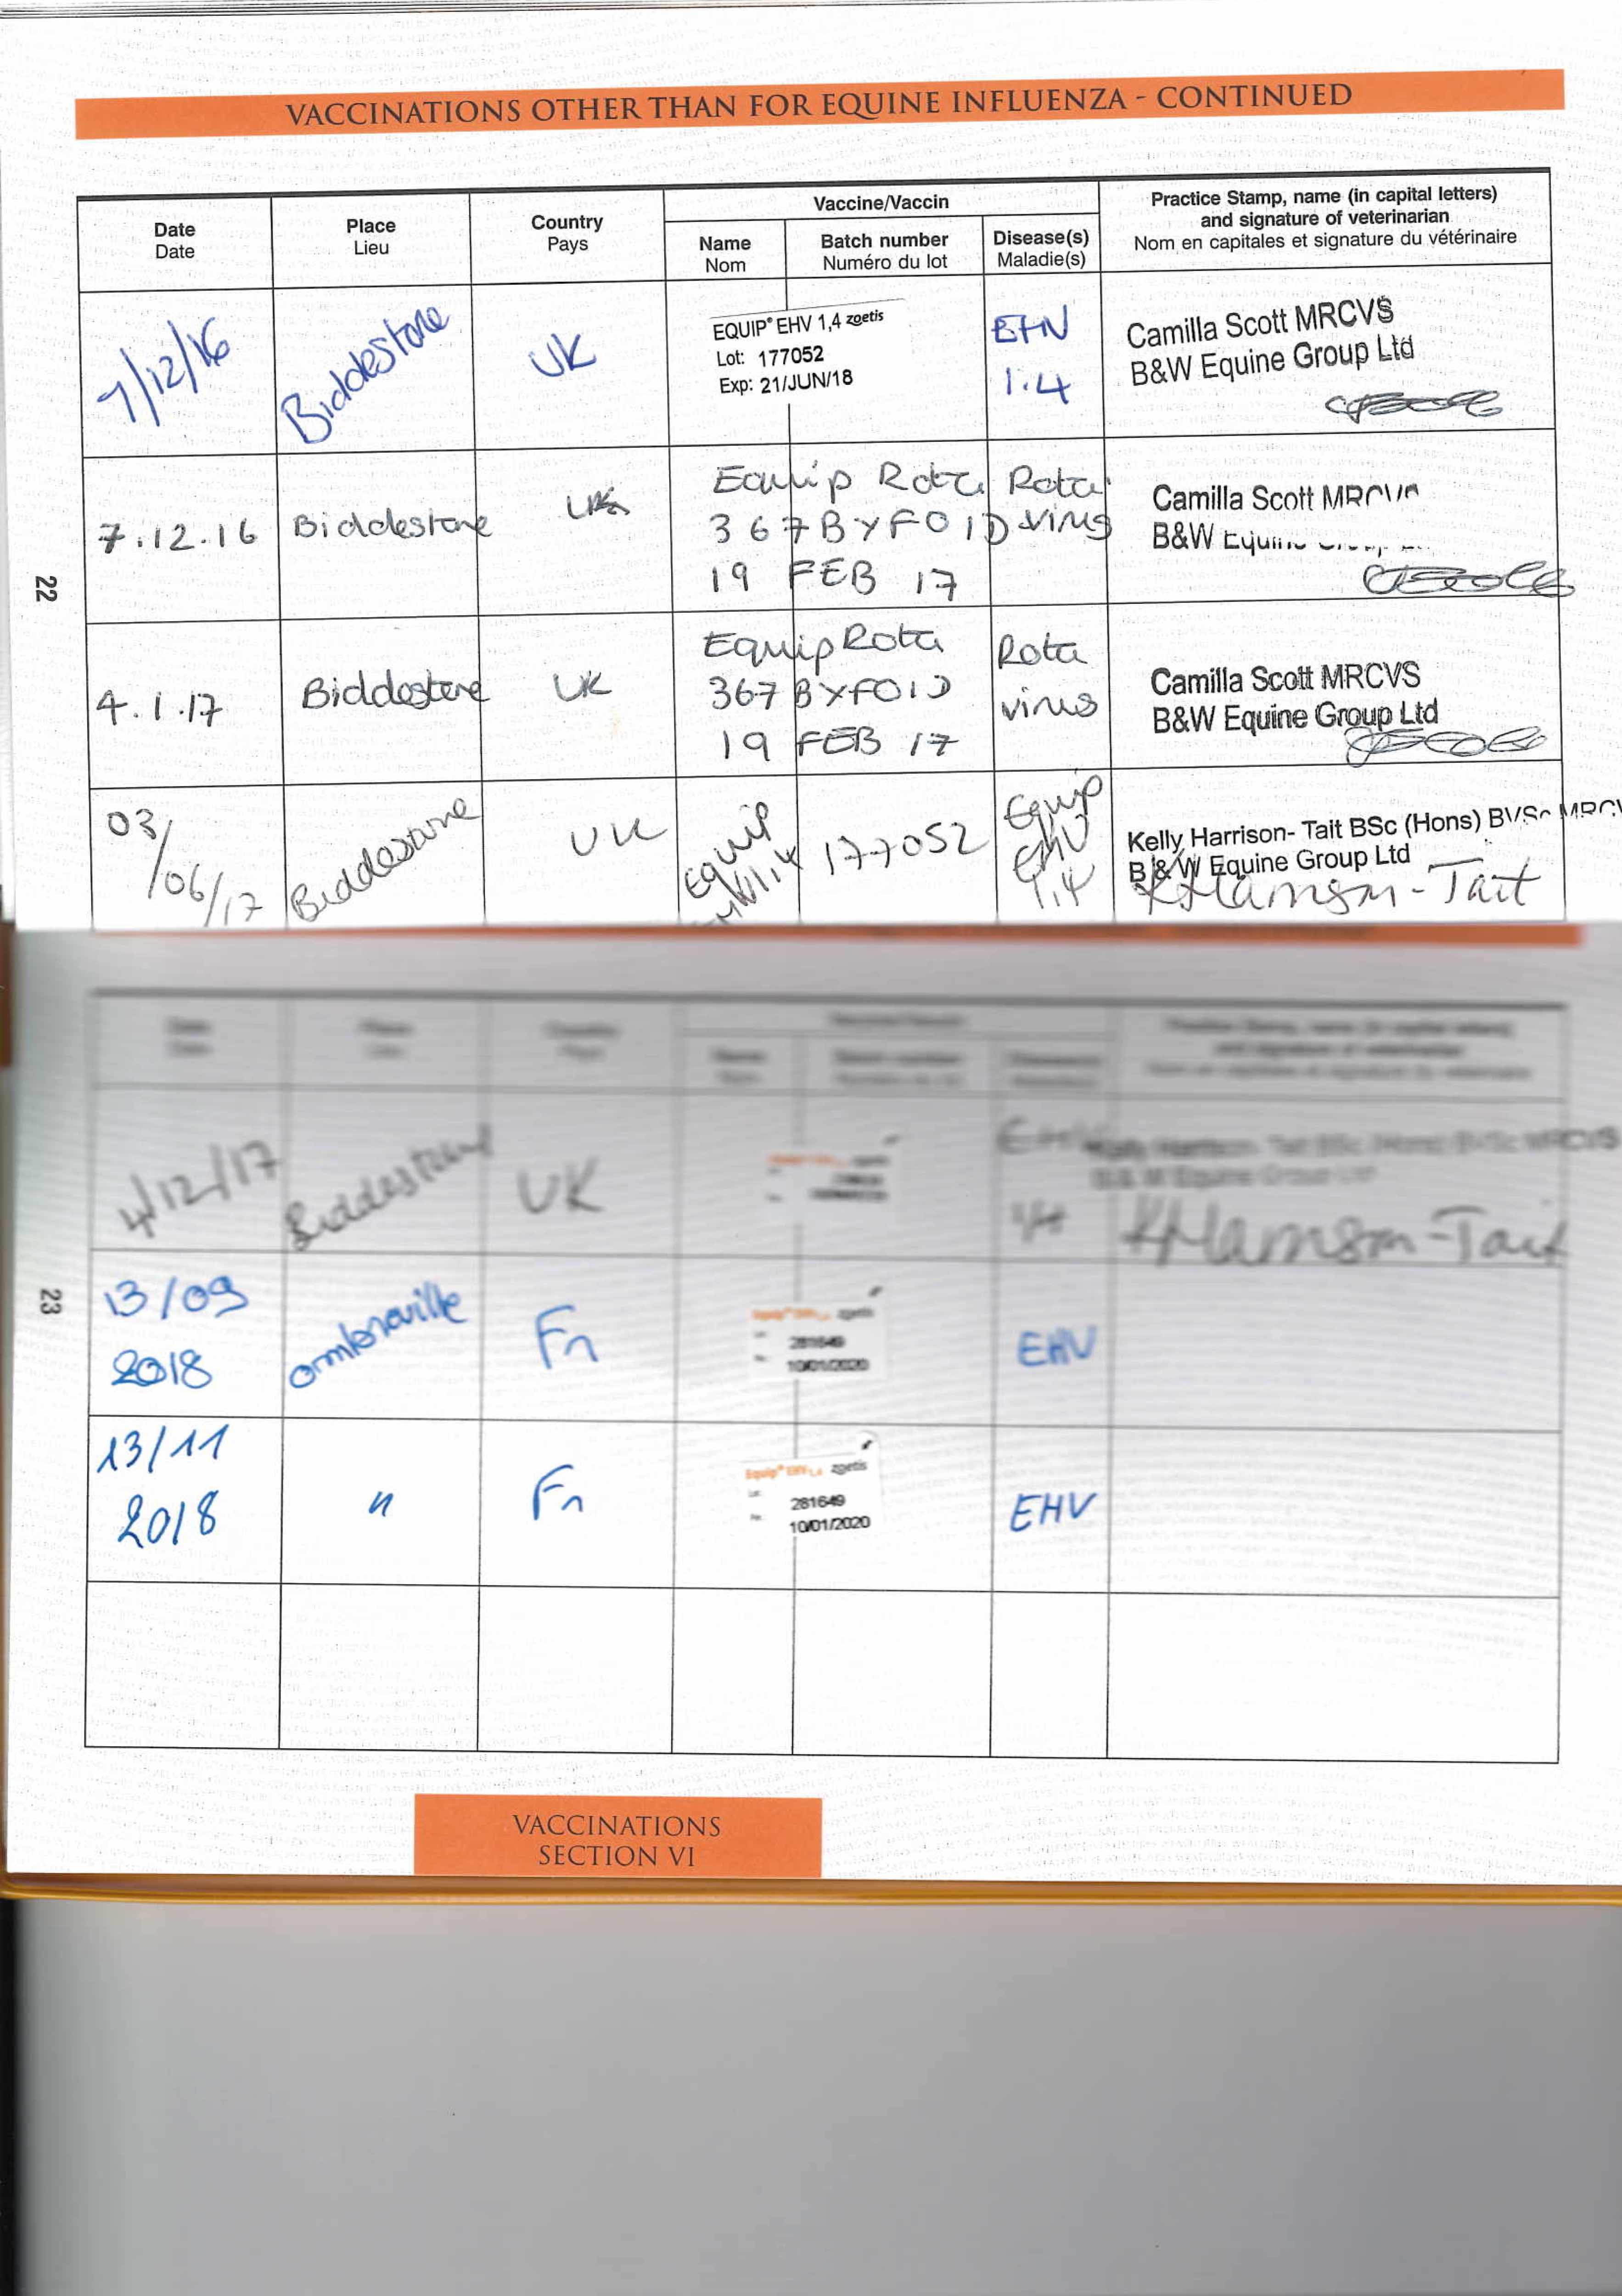 VACCINATIONS OTHER THAN FOR EQUINE INFLUENZA - CONTINUED
Date
Date
Place
Lieu
Country
Pays
Vaccine/Vaccin
Name
Nom
Batch number
Numéro du lot
Disease(s)
Maladie(s)
Practice Stamp, name (in capital letters)
and signature of veterinarian
Nom en capitales et signature du vétérinaire
7/12/16
Biddestone
UK
EQUIP® EHV 1,4 zoetis
Lot: 177052
Exp: 21/JUN/18
EHV
1.4
Camilla Scott MRCVS
B&W Equine Group Ltd
7.12.16
Biddestone
UK
Equip Rota
367BYF01D
19 FEB 17
Rota
virus
Camilla Scott MRCVS
B&W Equine
4.1.17
Biddestone
UK
Equip Rota
367BYF01D
19 FEB 17
Rota
virus
Camilla Scott MRCVS
B&W Equine Group Ltd
03/06/17
Biddestone
UK
Equip
177052
Equip
EHV
1,4
Kelly Harrison- Tait BSc (Hons) BVSc MRCV
B & W Equine Group Ltd
KHarrison-Tait
22
4/12/17
Biddestone
UK
EHV
1/4
Kelly Harrison- Tait BSc (Hons) BVSc MRCVS
B & W Equine Group Ltd
KHarrison-Tait
13/09
2018
Fn
281649
10/01/2020
EHV
13/11
2018
"
Fn
Equip® EHV 1,4 zoetis
281649
10/01/2020
EHV
23
VACCINATIONS
SECTION VI